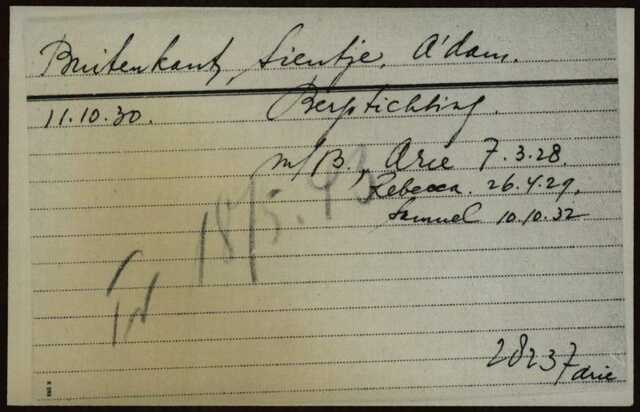 Buitenkant, Sientje, A'dam.
11.10.30. Bergstichting.
m/B., Arie 7.3.28.
Rebecca. 26.4.29,
Samuel 10.10.32
18/5.43
28237 arie